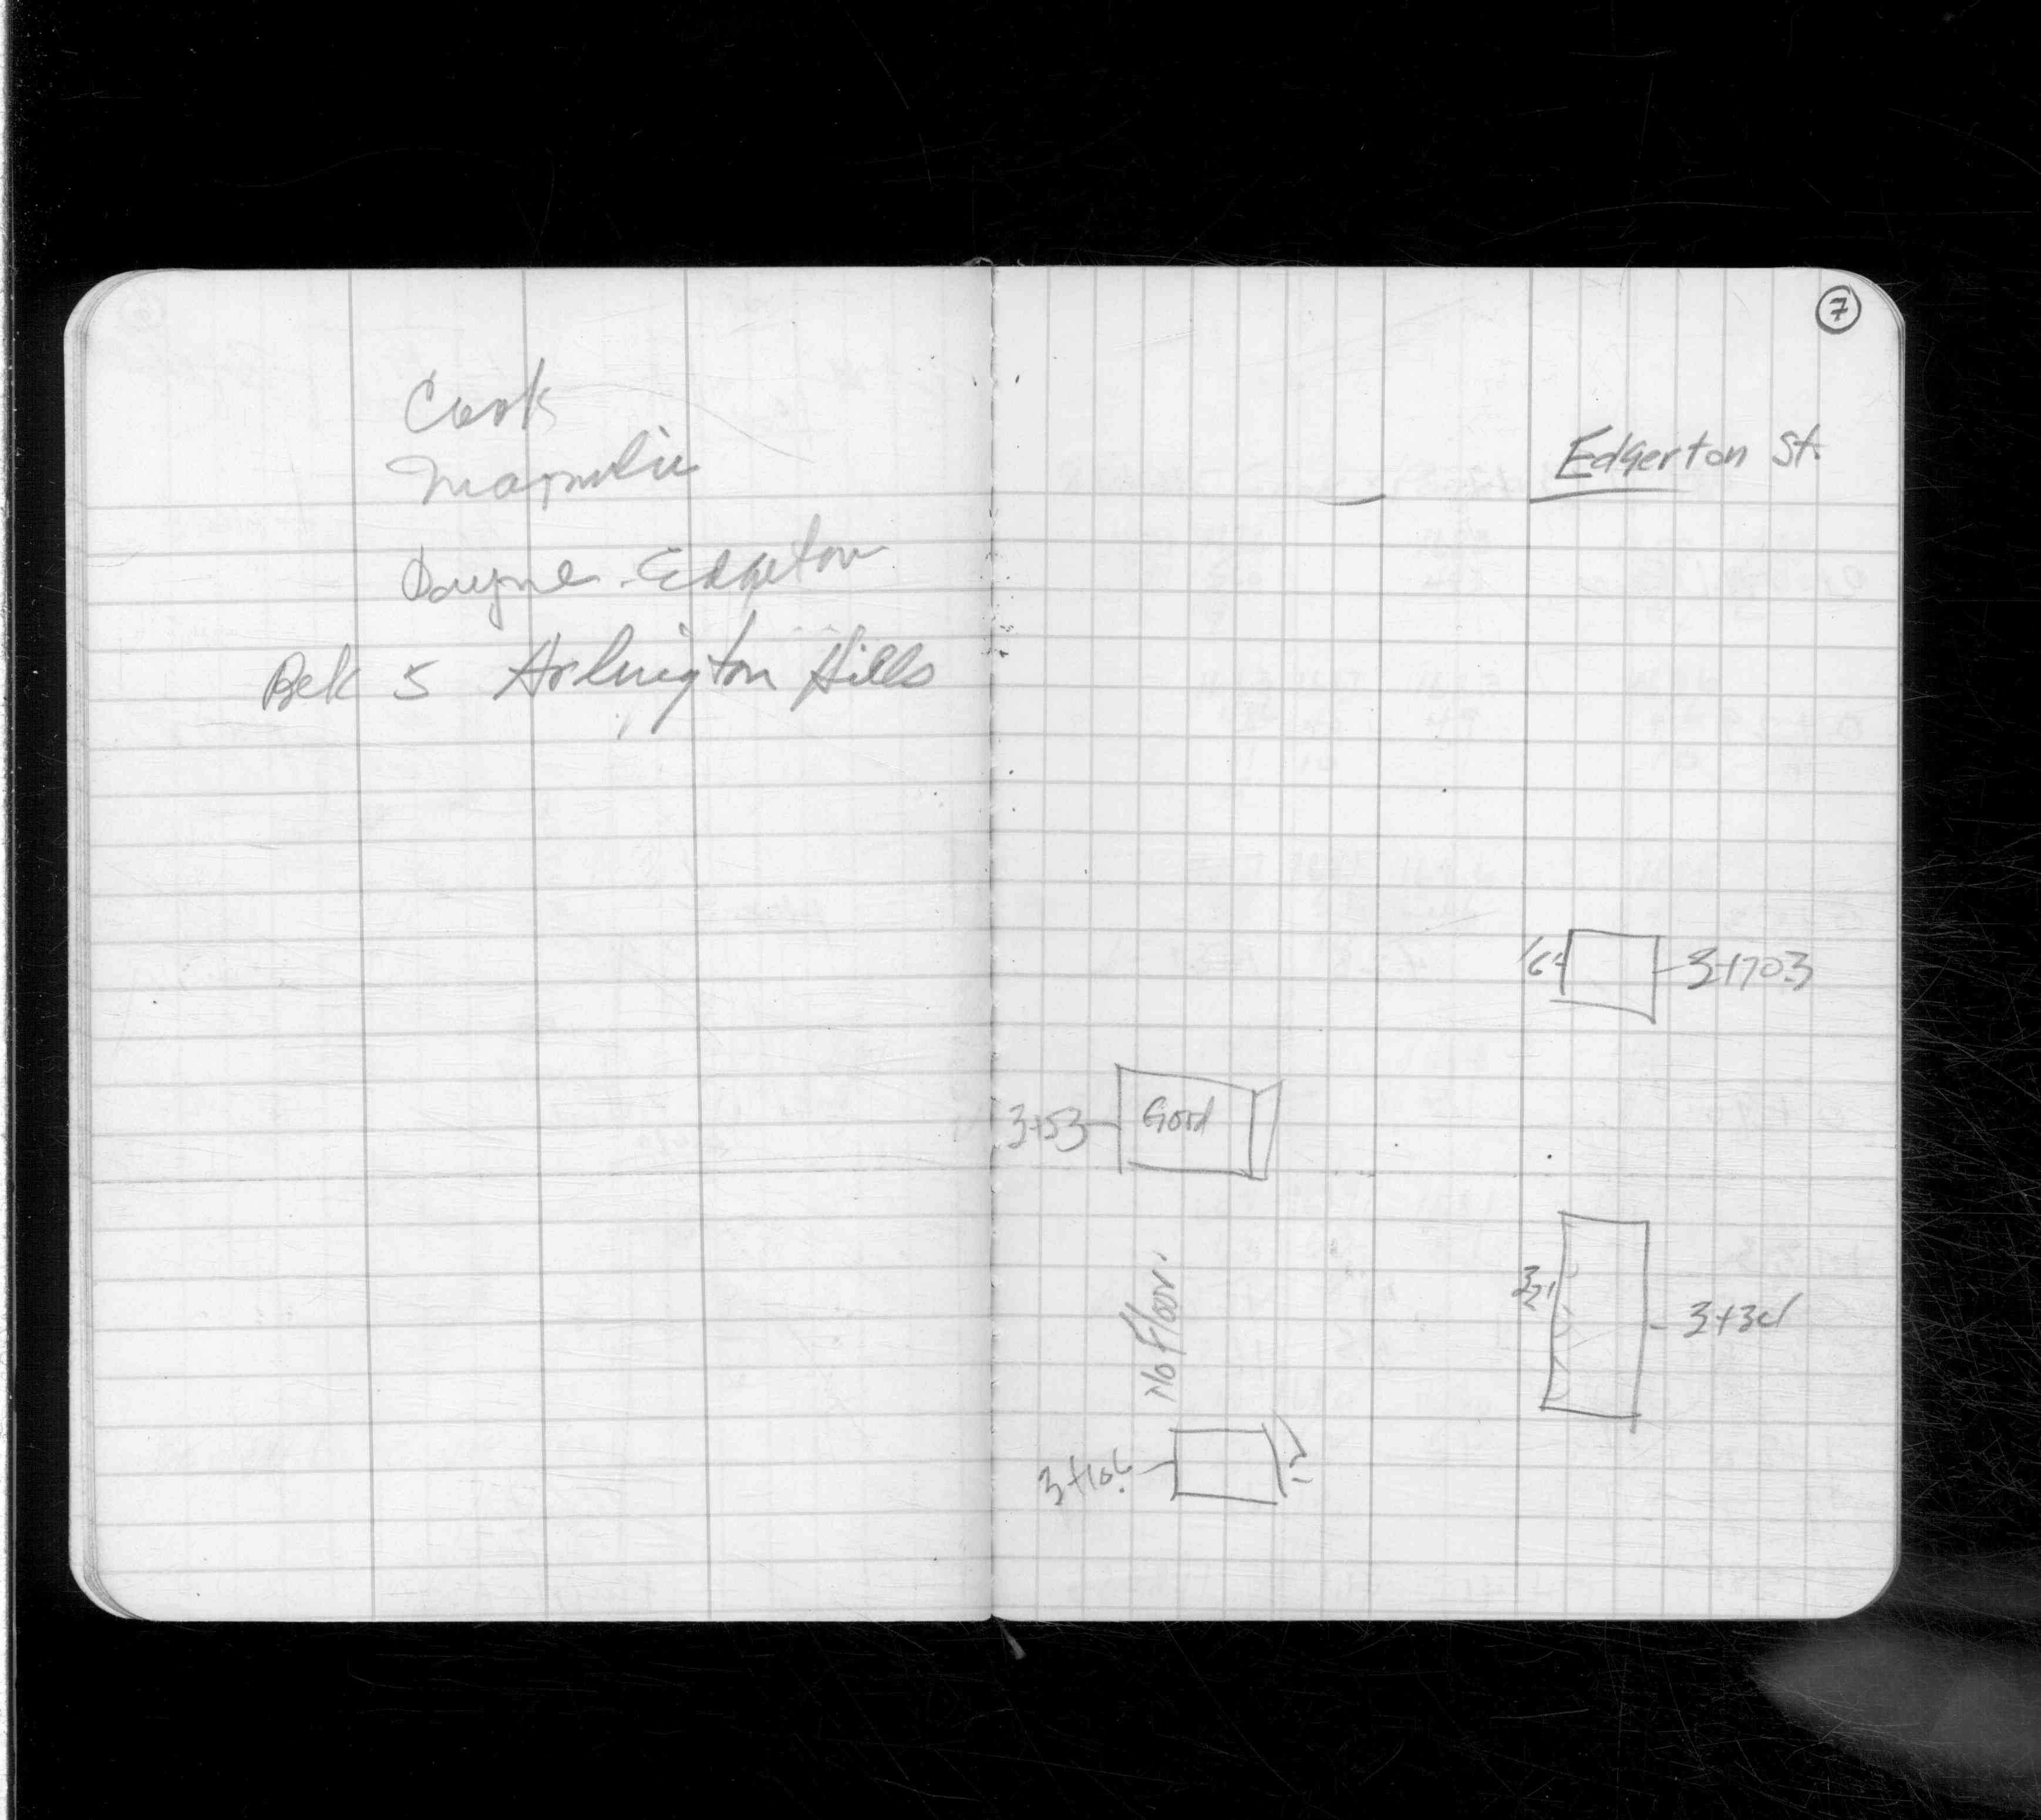 Cook
Magnolia
Payne Edgerton
Blk 5 Arlington Hills
7
Edgerton St.
16' 3+703
3+53 Good
No Floor.